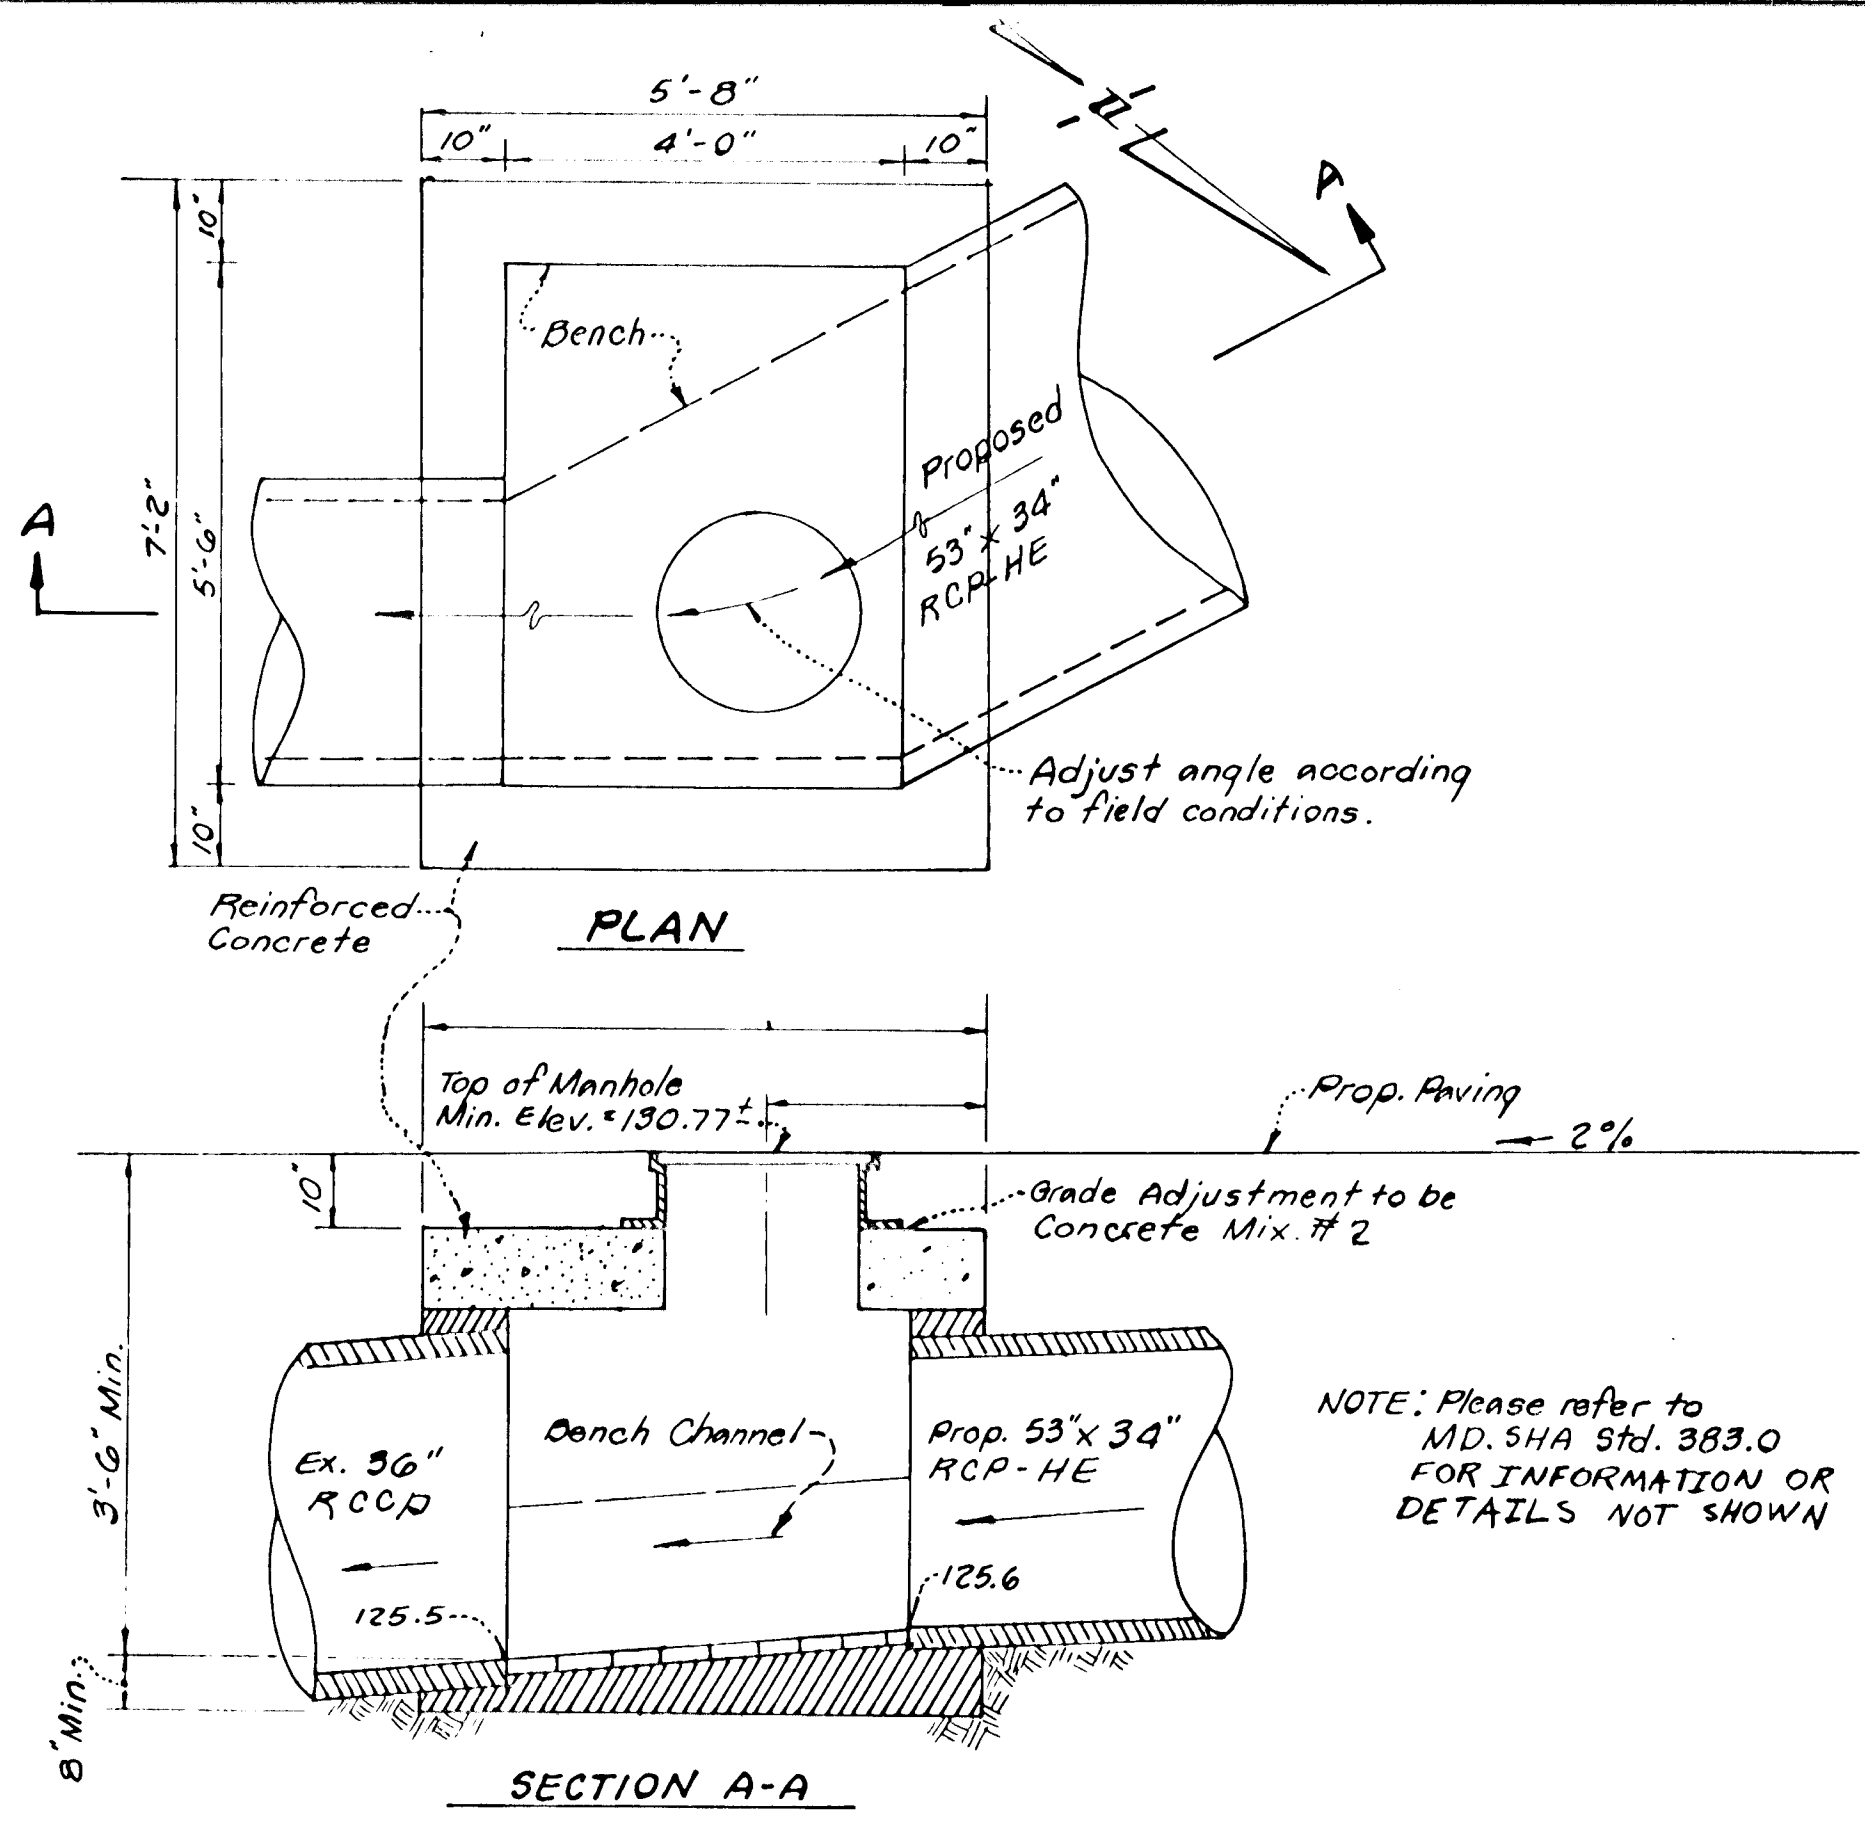 5'-8"
10"
4'-0"
10"
n
A
10"
Bench
Proposed
53" x 34"
RCP-HE
A
7'-2"
5'-6"
Adjust angle according
to field conditions.
10"
Reinforced
Concrete
PLAN
Top of Manhole
Min. Elev. = 130.77±
Prop. Paving
2%
10"
Grade Adjustment to be
Concrete Mix. # 2
3'-6" Min.
Bench Channel
Prop. 53" x 34"
RCP-HE
Ex. 36"
RCCP
NOTE: Please refer to
MD. SHA Std. 383.0
FOR INFORMATION OR
DETAILS NOT SHOWN
125.6
125.5
8" Min.
SECTION A-A